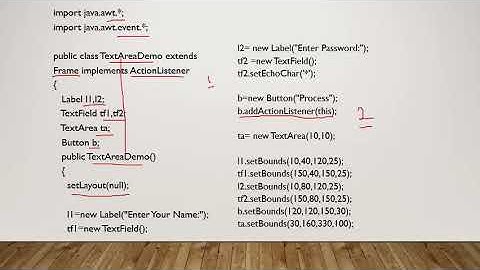 import java.awt.*;
import java.awt.event.*;
public class TextAreaDemo extends
Frame implements ActionListener
{
Label l1,l2;
TextField tf1,tf2;
TextArea ta;
Button b;
public TextAreaDemo()
{
setLayout(null);
l1=new Label("Enter Your Name:");
tf1=new TextField();
1
l2= new Label("Enter Password:");
tf2 =new TextField();
tf2.setEchoChar('*');
b=new Button("Process");
b.addActionListener(this);
2
ta= new TextArea(10,10);
l1.setBounds(10,40,120,25);
tf1.setBounds(150,40,150,25);
l2.setBounds(10,80,120,25);
tf2.setBounds(150,80,150,25);
b.setBounds(120,120,150,30);
ta.setBounds(30,160,330,100);